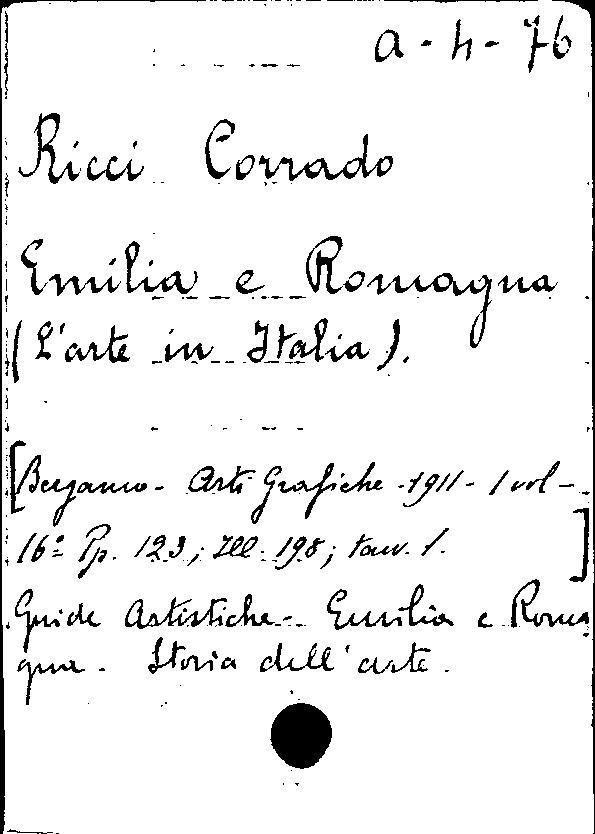 a - h - 76
Ricci Corrado
Emilia e Romagna
(L'arte in Italia).
[Bergamo - Arti Grafiche - 1911 - 1 vol -
16º Pp. 123; Ill. 198; tav. 1. ]
Guide Artistiche - Emilia e Roma
gna - Storia dell'arte.